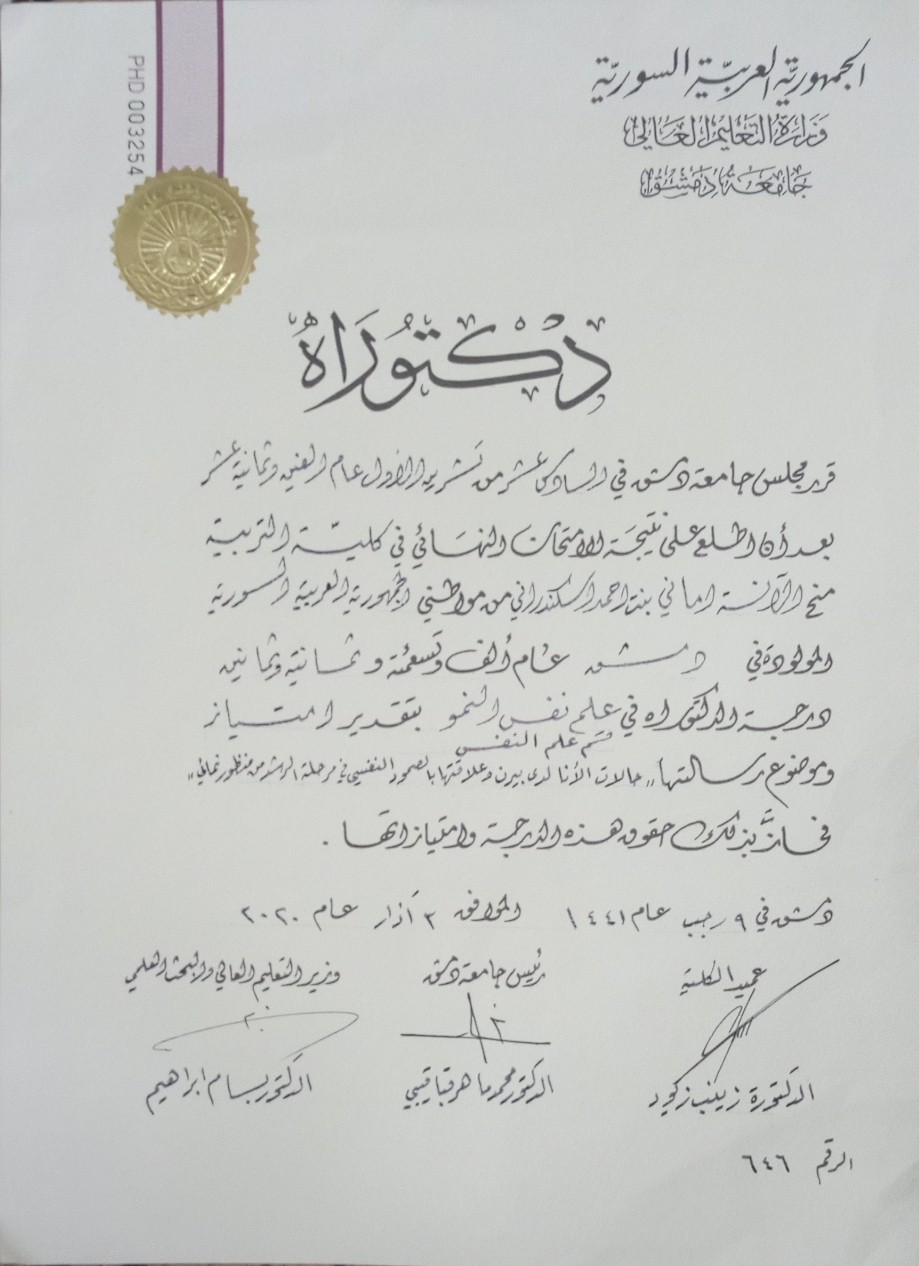 PHD 003254
الجمهورية العربية السورية
وزارة التعليم العالي
جامعة دمشق
دكتوراه
قرر مجلس جامعة دمشق في السادس عشر من تشرين الأول عام ألفين وثمانية عشر
بعد أن اطلع على نتيجة الامتحان النهائي في كلية التربية
منح الآنسة اماني بنت احمد اسكندراني من مواطني الجمهورية العربية السورية
المولودة في دمشق عام ألف وتسعمئة و ثمانية وثمانين
درجة الدكتوراه في علم نفس النمو بتقدير امتياز
قسم علم النفس
وموضوع رسالتها "حالات الأنا لدى بيرن وعلاقتها بالصمود النفسي في مرحلة الرشد من منظور نمائي"
فحازت بذلك حقوق هذه الدرجة وامتيازاتها .
دمشق في ٩ رجب عام ١٤٤١ الموافق ٣ آذار عام ٢٠٢٠
عميد الكلية رئيس جامعة دمشق وزير التعليم العالي والبحث العلمي
الدكتورة زينب زيود الدكتور محمد ماهر قباقيبي الدكتور بسام ابراهيم
الرقم ٦٤٦